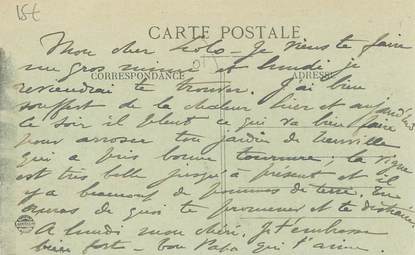 15€
CARTE POSTALE
Mon cher Lolo - Je viens te faire
un gros mimi et lundi je
CORRESPONDANCE ADRESSE
reviendrai te trouver. J'ai bien
souffert de la chaleur hier et aujourd'hui
ce soir il pleut ce qui va bien faire
pour arroser ton jardin de
qui a pris bonne tournure, la vigne
est très belle jusqu'à présent et il
y a beaucoup de pommes de terre. Tu
auras de quoi te promener et te distraire
A lundi mon chéri, je t'embrasse
bien fort - ton Papa qui t'aime.